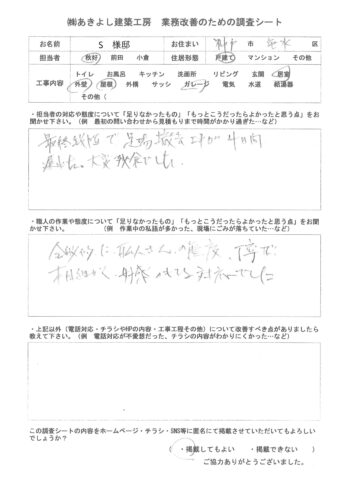 ㈱あきよし建築工房　業務改善のための調査シート
お名前　S 様邸　お住まい　市　区
担当者　秋好　前田　小倉　住居形態　戸建て　マンション　その他
工事内容　トイレ　お風呂　キッチン　洗面所　リビング　玄関　居室
外壁　屋根　外構　サッシ　ガレージ　電気　水道　給湯器
その他（
・担当者の対応や態度について「足りなかったもの」「もっとこうだったらよかったと思う点」をお
聞かせ下さい。（例　最初の問い合わせから見積もりまで時間がかかり過ぎた…など）
最終段階で足場撤去工事が4日間
遅れた。大変残念でした。
・職人の作業や態度について「足りなかったもの」「もっとこうだったらよかったと思う点」をお聞
かせ下さい。　（例　作業中の私語が多かった、現場にごみが落ちていた…など）
全般的に職人さんの態度、丁寧で
対応でした
・上記以外（電話対応・チラシやHPの内容・工事工程その他）について改善すべき点がありましたら
教えて下さい。（例　電話対応が不愛想だった、チラシの内容がわかりにくかった…など）
この調査シートの内容をホームページ・チラシ・SNS等に匿名にて掲載させていただいてもよろしい
でしょうか？
（　・掲載してもよい　・掲載できない　）
ご協力ありがとうございました。